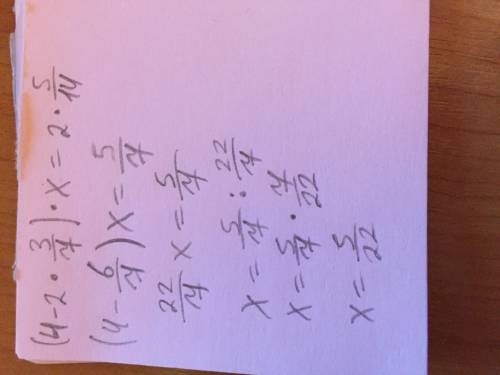 (4-2·3/7)·x=2·5/14
(4-6/7)x=5/7
22/7 x=5/7
x=5/7:22/7
x=5/7·7/22
x=5/22